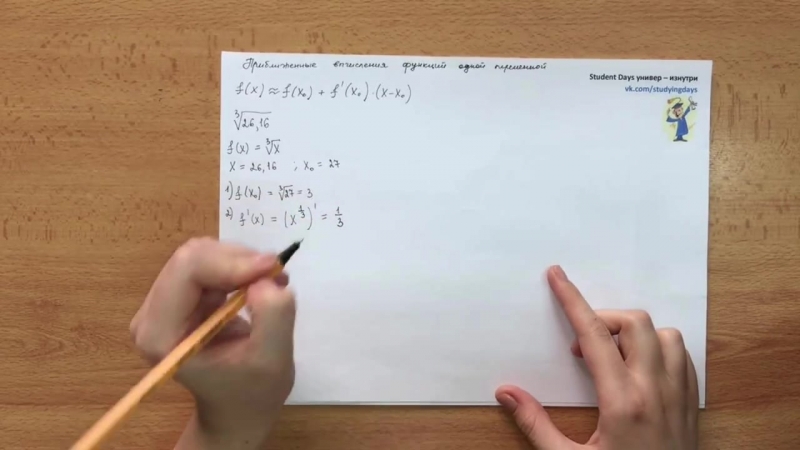 Приближенные вычисления функций одной переменной
Student Days универ – изнутри
vk.com/studyingdays
f(x) ≈ f(x₀) + f'(x₀)·(x-x₀)
∛26,16
f(x) = ∛x
x = 26,16 ; x₀ = 27
1) f(x₀) = ∛27 = 3
2) f'(x) = (x^(1/3))' = 1/3